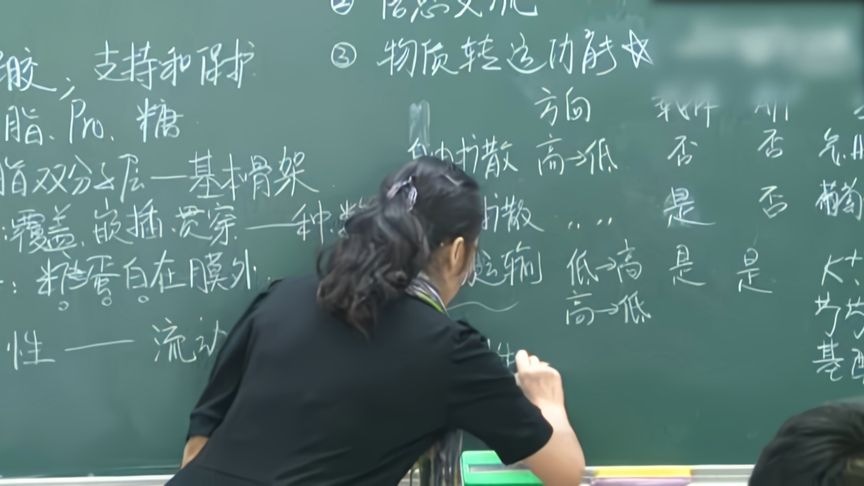 ② 信息交流
③ 物质转运功能☆
胶，支持和保护
脂、Pro、糖
脂双分子层—基本骨架
覆盖、嵌插、贯穿—种
：糖蛋白在膜外
性——流动
方向
扩散 高→低 否 否
扩散 〃 是 否 葡萄
运输 低→高 是 是 K⁺
高→低
基